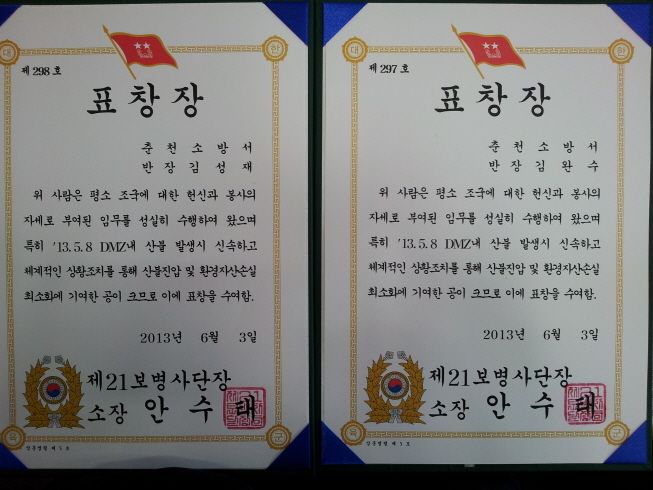 제 298 호
표창장
춘천소방서
반장김성재
위 사람은 평소 조국에 대한 헌신과 봉사의
자세로 부여된 임무를 성실히 수행하여 왔으며
특히 '13.5.8 DMZ내 산불 발생시 신속하고
체계적인 상황조치를 통해 산불진압 및 환경자산손실
최소화에 기여한 공이 크므로 이에 표창을 수여함.
2013년 6월 3일
제21보병사단장
소장 안수태
대
한
육
군
제 297 호
표창장
춘천소방서
반장김완수
위 사람은 평소 조국에 대한 헌신과 봉사의
자세로 부여된 임무를 성실히 수행하여 왔으며
특히 '13.5.8 DMZ내 산불 발생시 신속하고
체계적인 상황조치를 통해 산불진압 및 환경자산손실
최소화에 기여한 공이 크므로 이에 표창을 수여함.
2013년 6월 3일
제21보병사단장
소장 안수태
대
한
육
군